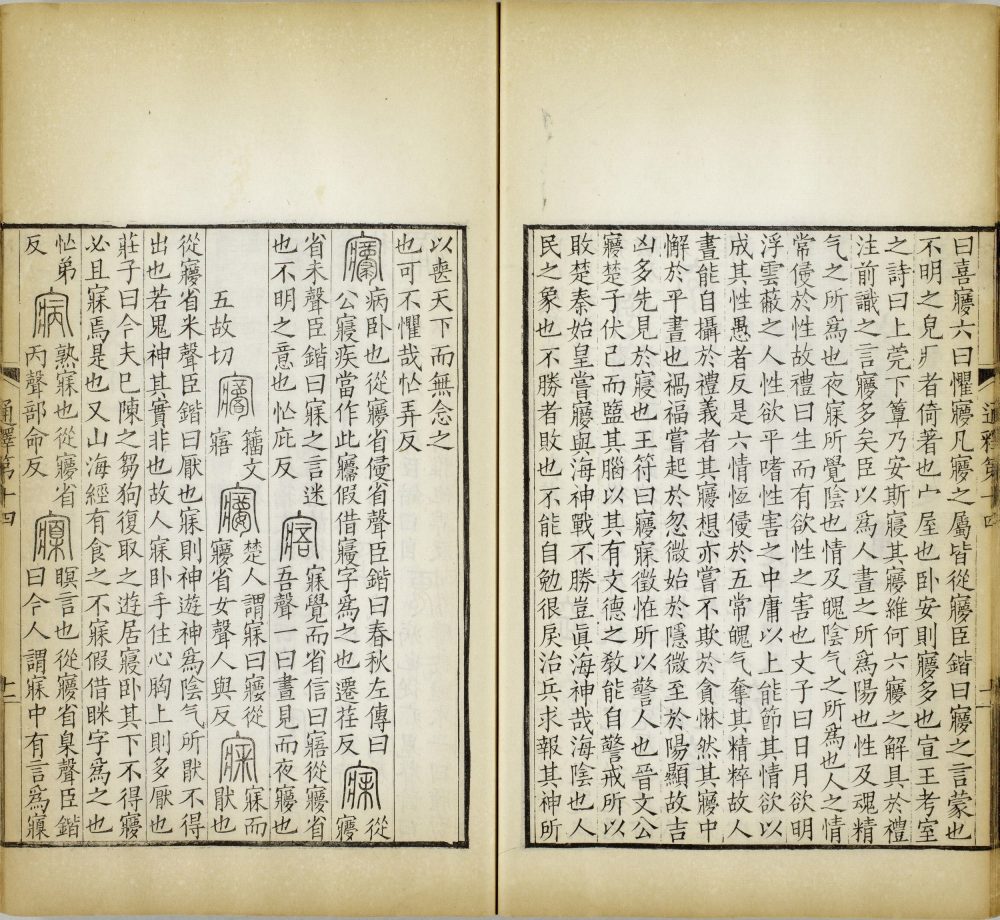 曰喜㝱六曰懼㝱凡㝱之屬皆從㝱臣鍇曰㝱之言蒙也
不明之皃疒者倚著也宀屋也卧安則㝱多也宣王考室
之詩曰上莞下簟乃安斯寢其㝱維何六㝱之解具於禮
注前識之言㝱多矣臣以爲人晝之所爲陽也性及魂精
气之所爲也夜寐所覺陰也情及䰟陰气之所爲也人之情
常侵於性故禮曰生而有欲性之害也文子曰日月欲明
浮雲蔽之人性欲平嗜性害之中庸以上能節其情欲以
成其性愚者反是六情恆侵於五常魄气奪其精粹故人
晝能自攝於禮義者其㝱想亦嘗不欺於貪惏然其㝱中
懈於平晝也禍福嘗起於忽微始於隱微至於陽顯故吉
凶多先見於寢也王符曰㝱寐徵恠所以警人也晉文公
㝱楚子伏己而盬其腦以其有文德之敎能自警戒所以
敗楚秦始皇嘗㝱與海神戰不勝豈眞海神哉海陰也人
民之象也不勝者敗也不能自勉很戾治兵求報其神所
以喪天下而無念之
也可不懼哉忙弄反
病卧也從㝱省𠬶省聲臣鍇曰春秋左傳曰
公寢疾當作此𡪢假借寢字爲之也遷荏反 寐 從㝱
省未聲臣鍇曰寐之言迷
也不明之意也忙庇反 寤 寐覺而省信曰寤從㝱省
吾聲一曰晝見而夜㝱也
五故切 籒文
寤 楚人謂寐曰㝱從
㝱省女聲人與反 寐而厭也
從㝱省米聲臣鍇曰厭也寐則神遊神爲陰气所厭不得
出也若鬼神其實非也故人寐卧手住心胸上則多厭也
莊子曰今夫已陳之芻狗復取之遊居寢卧其下不得㝱
必且寐焉是也又山海經有食之不寐假借眯字爲之也
忙弟
反 熟寐也從㝱省
丙聲部命反 瞑言也從㝱省臬聲臣鍇
曰今人謂寐中有言爲寱
通釋第十四
十二